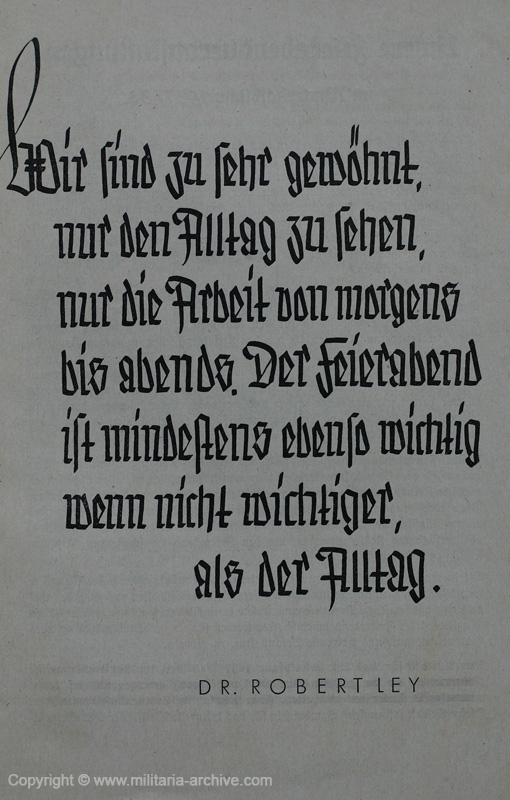 Wir sind zu sehr gewöhnt,
nur den Alltag zu sehen,
nur die Arbeit von morgens
bis abends. Der Feierabend
ist mindestens ebenso wichtig
wenn nicht wichtiger,
als der Alltag.
DR. ROBERT LEY
Copyright © www.militaria-archive.com